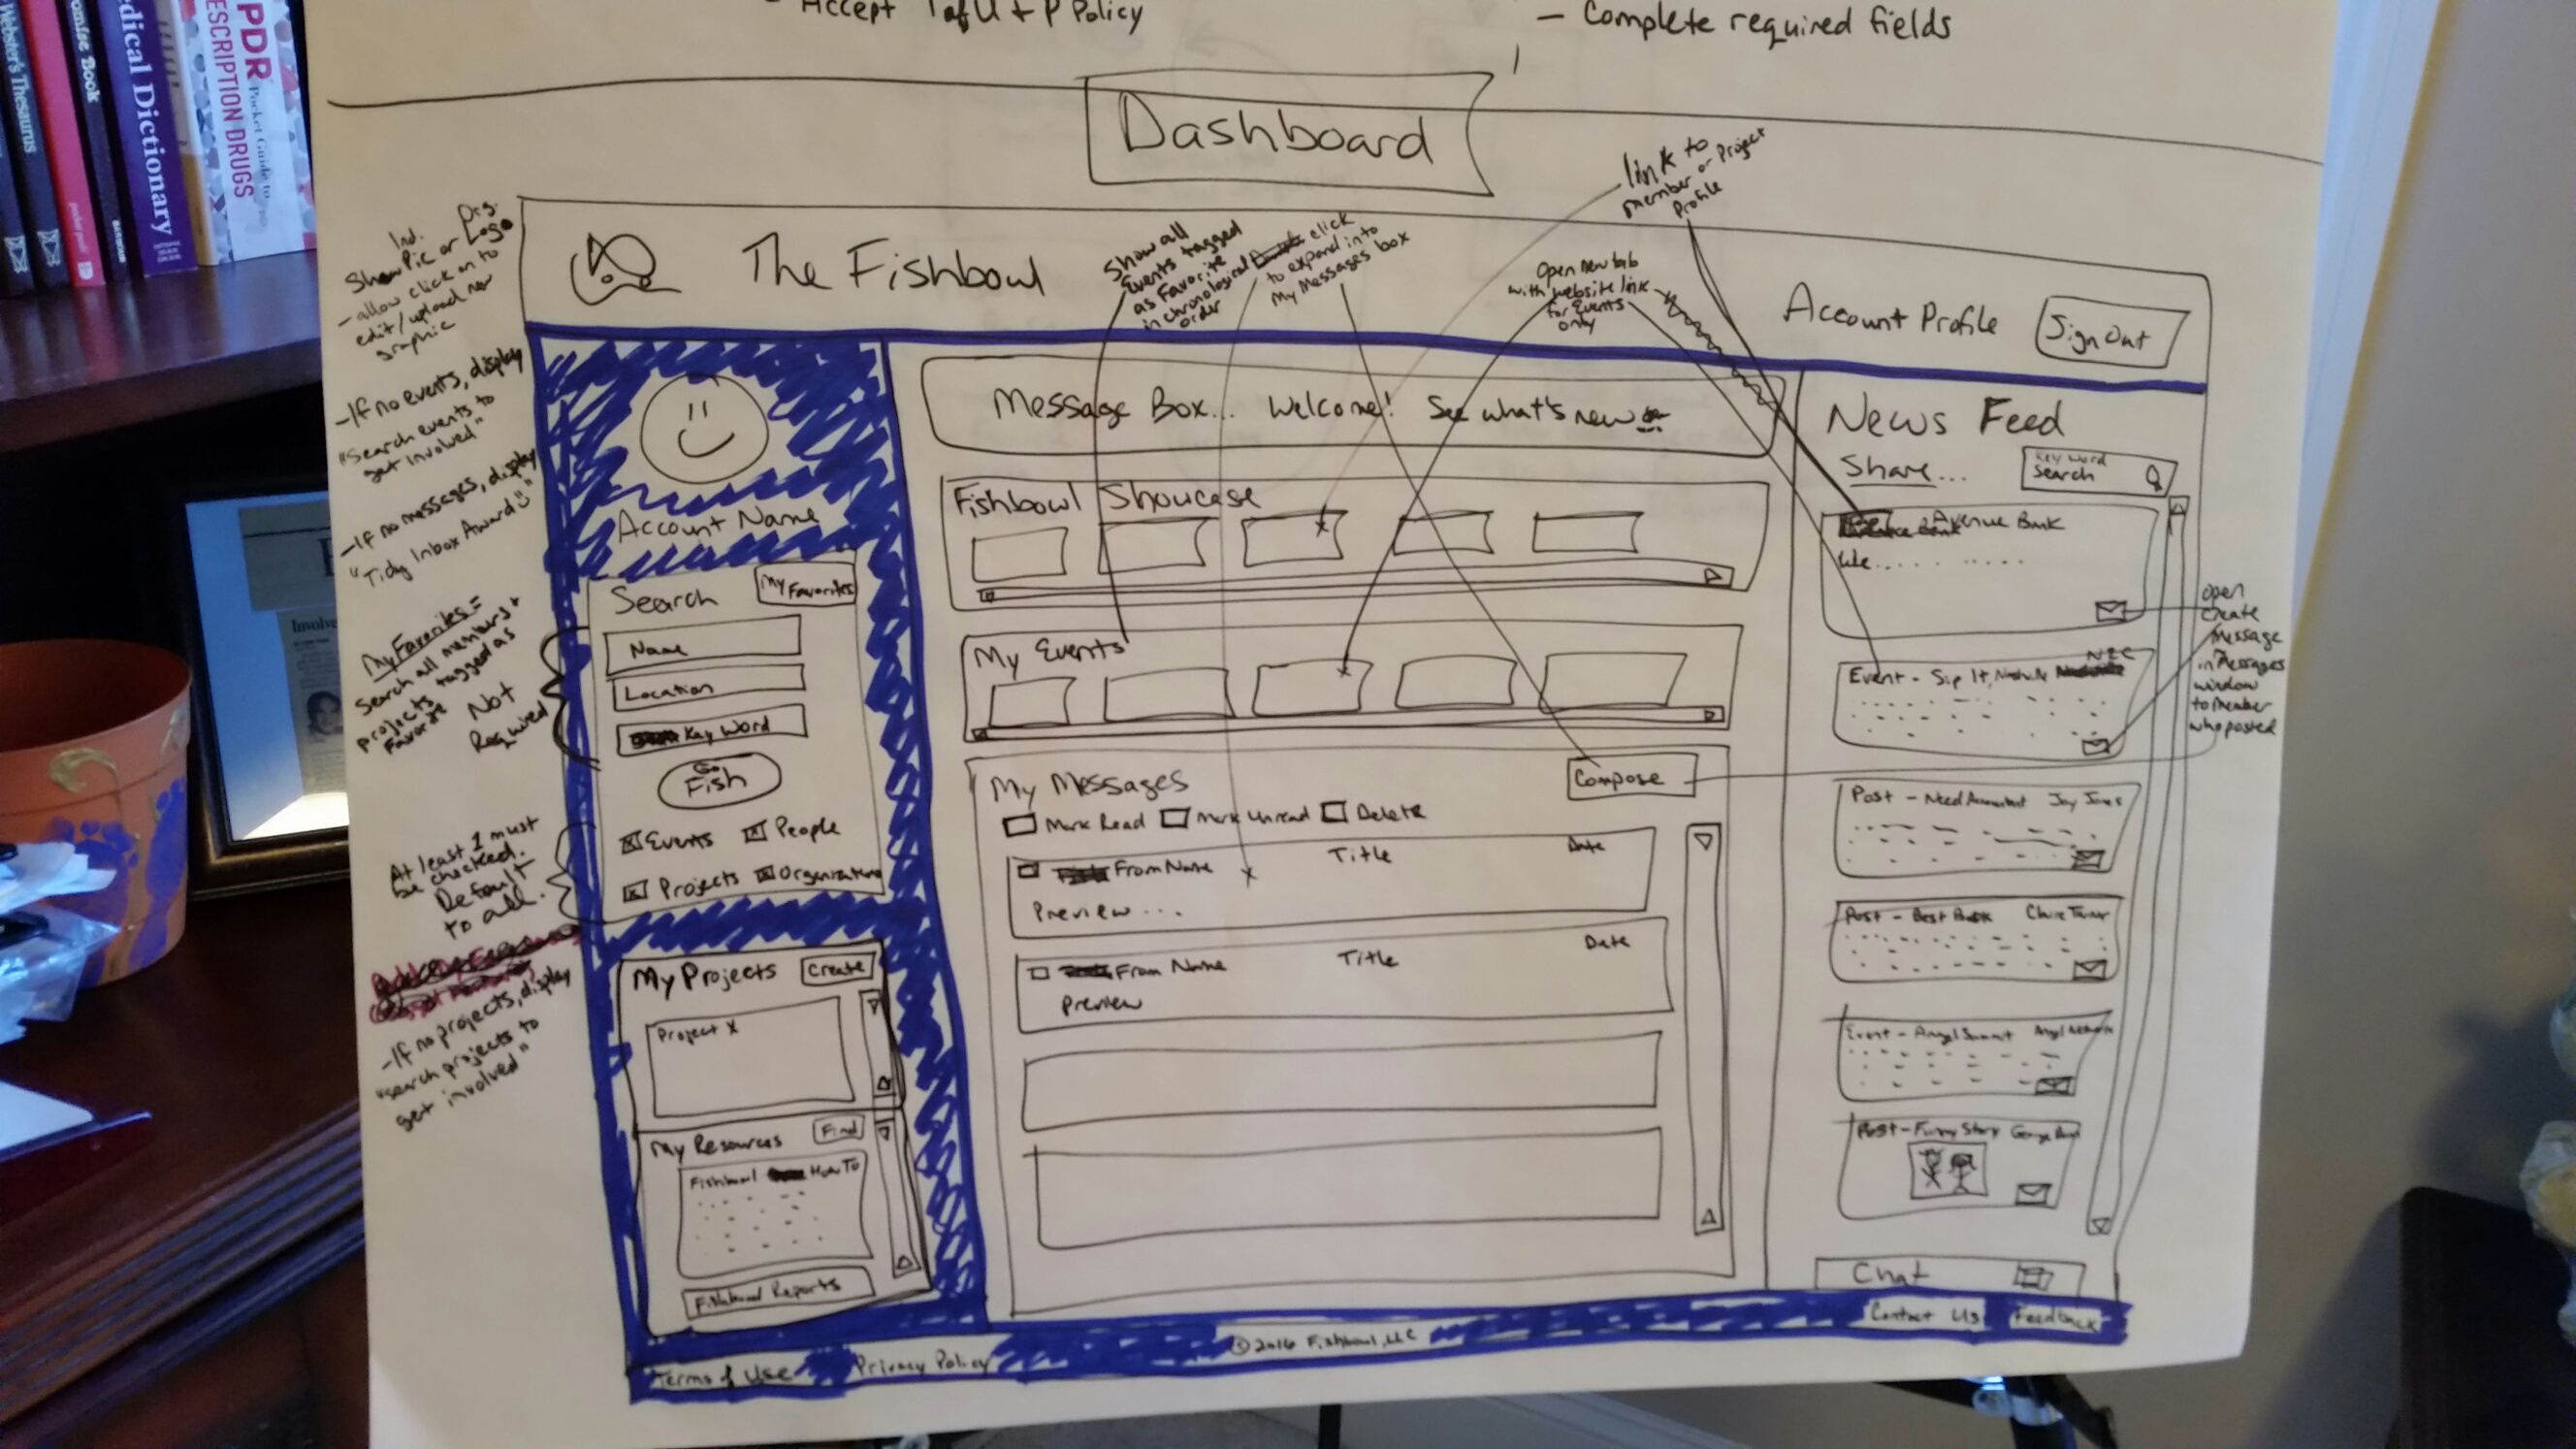 Webster's Thesaurus
Promise Book
Medical Dictionary
PDR
Pocket Guide to
PRESCRIPTION DRUGS
Involve
- Accept T of U + P Policy
- Complete required fields
Dashboard
Ind. Org.
Show Pic or Logo
- allow click on to
edit/upload new
graphic
- If no events, display
"Search events to
get involved"
- If no messages, display
"Tidy Inbox Award☺"
My Favorites =
Search all members +
projects tagged as
Favorite
Not
Required
At least 1 must
be checked.
Default
to all.
- If no projects, display
"search projects to
get involved"
The Fishbowl
Show all
Events tagged
as Favorite
in chronological
order
click
to expand into
My Messages box
Open new tab
with website link
for Events
only
link to
member or Project
Profile
Account Profile
Sign Out
Account Name
Search
My Favorites
Name
Location
Key Word
Go
Fish
Events
People
Projects
Organizations
My Projects
Create
Project X
My Resources
Find
Fishbowl How To
Fishbowl Reports
Message Box... Welcome! See what's new
Fishbowl Showcase
My Events
My Messages
Compose
Mark Read
Mark Unread
Delete
From Name Title Date
Preview...
From Name Title Date
Preview
News Feed
Share...
Key Word
Search
Avenue Bank
like..........
Event - Sip It, Nashville N2C
Post - Need Accountant Joy Jones
Post - Best Claire Turner
Event - Angel Summit Angel Network
Post - Funny Story George
Chat
open
create
message
in Messages
window
to member
who posted
Terms of Use
Privacy Policy
© 2016 Fishbowl, LLC
Contact Us
Feedback